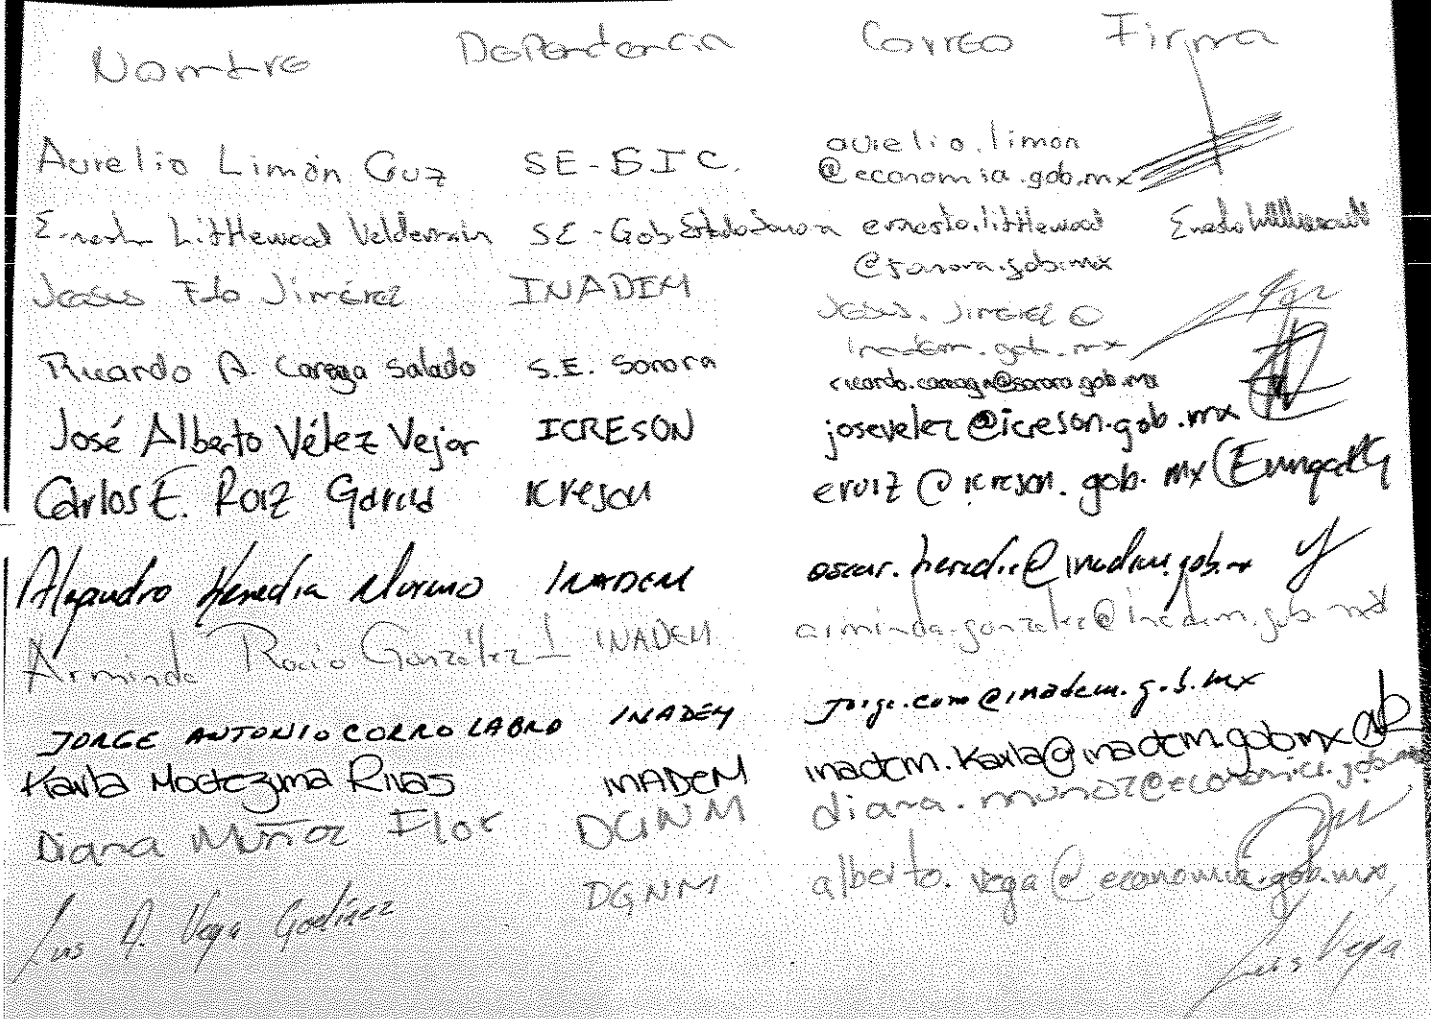 Nombre Dependencia Correo Firma
Aurelio Limón Guz SE-BIC. aurelio.limon
@economia.gob.mx
Ernesto Littlewood Valderrain SE-Gob. Estado Sonora ernesto.littlewood
@sonora.gob.mx
Jesús Fdo Jiménez INADEM Jesús.Jimenez@
inadem.gob.mx
Ricardo A. Careaga Salado S.E. Sonora ricardo.careaga@sonora.gob.mx
José Alberto Vélez Vejar ICRESON josevelez@icreson.gob.mx
Carlos E. Ruiz García Icreson eruiz@icreson.gob.mx
Alejandro Heredia Moreno INADEM oscar.heredia@inadem.gob.mx
Arminda Rocio González L INADEM arminda.gonzalez@inadem.gob.mx
JORGE ANTONIO CORRO LABRA INADEM Jorge.corro@inadem.gob.mx
Karla Moctezuma Rivas INADEM inadem.karla@inadem.gob.mx
Diana Muñoz Flor DGNM diana.munoz@economia.gob.mx
Luis A. Vega Godínez DGNM alberto.vega@economia.gob.mx
Luis Vega